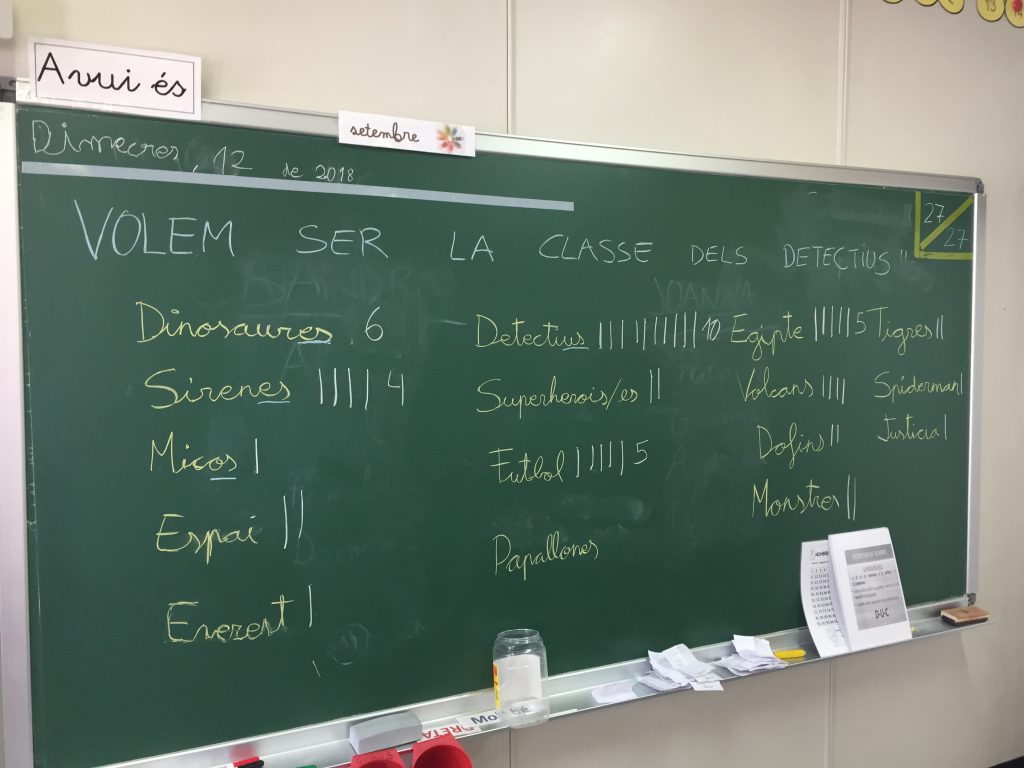 Avui és
setembre
Dimecres, 12 de 2018
27
27
VOLEM SER LA CLASSE DELS DETECTIUS"
Dinosaures 6
Sirenes |||| 4
Micos |
Espai ||
Everest |
Detectius |||||||||| 10
Superherois/es ||
Futbol ||||| 5
Papallones
Egipte ||||| 5
Volcans ||||
Dofins ||
Monstres ||
Tigres ||
Spiderman |
Justícia |